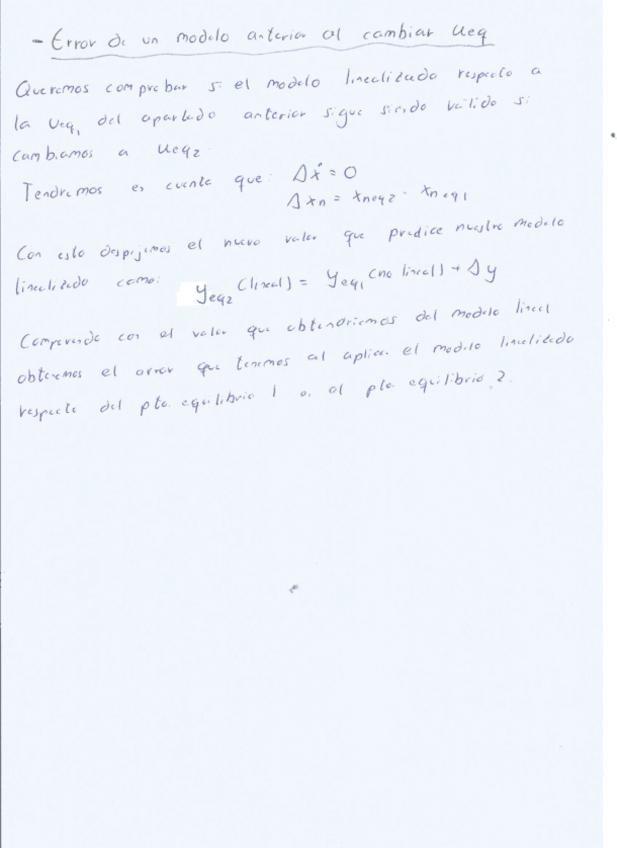 - Error de un modelo anterior al cambiar ueq
Queremos comprobar si el modelo linealizado respecto a
la ueq₁ del apartado anterior sigue siendo válido si
cambiamos a ueq₂.
Tendremos en cuenta que: Δẋ = 0
Δxn = xneq2 - xneq1
Con esto despejamos el nuevo valor que predice nuestro modelo
linealizado como: yeq₂ (lineal) = yeq₁ (no lineal) + Δy
Comparando con el valor que obtendríamos del modelo lineal
obtenemos el error que tenemos al aplicar el modelo linealizado
respecto del pto. equilibrio 1 al pto equilibrio 2.